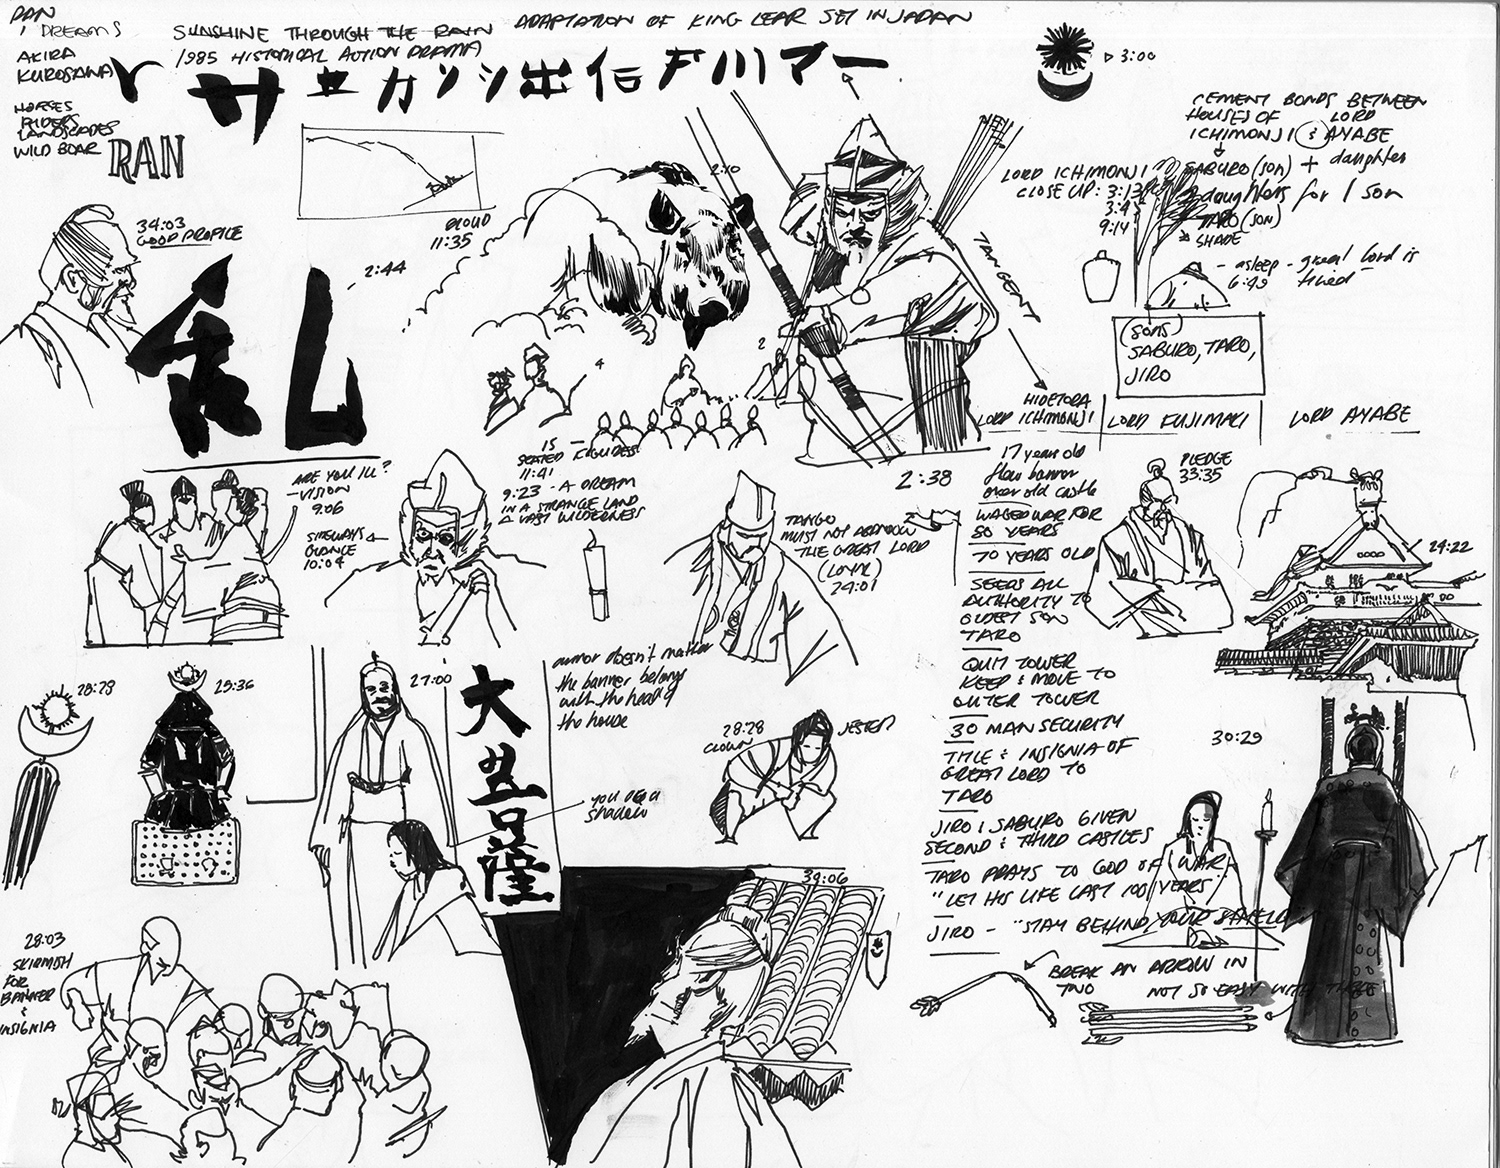 RAN
DREAMS
AKIRA
KUROSAWA
HORSES
RIDERS
LANDSCAPES
WILD BOAR
RAN
SUNSHINE THROUGH THE RAIN
ADAPTATION OF KING LEAR SET IN JAPAN
1985 HISTORICAL ACTION DRAMA
3:00
CEMENT BONDS BETWEEN
HOUSES OF LORD
ICHIMONJI & AYABE
SABURO (SON) + daughter
2 daughters for 1 son
TARO (SON)
SHADE
LORD ICHIMONJI
CLOSE UP: 3:13
3:4
9:14
- asleep - great lord is
6:49 tired -
(SONS)
SABURO, TARO,
JIRO
34:03
GOOD PROFILE
CLOUD
11:35
2:10
2:44
乱
TANGENT
4
2
15
SEATED FIGURES
11:41
9:23 - A DREAM
IN A STRANGE LAND
A VAST WILDERNESS
2:38
ARE YOU ILL?
- VISION
9:06
SIDEWAYS
GLANCE
10:04
TANGO
MUST NOT ABANDON
THE GREAT LORD
(LOYAL)
24:01
HIDETORA
LORD ICHIMONJI
LORD FUJIMAKI
LORD AYABE
17 year old
flew banner
over old castle
WAGED WAR FOR
50 YEARS
70 YEARS OLD
CEDES ALL
AUTHORITY TO
OLDEST SON
TARO
QUIT TOWER
KEEP & MOVE TO
OUTER TOWER
30 MAN SECURITY
TITLE & INSIGNIA OF
GREAT LORD TO
TARO
JIRO & SABURO GIVEN
SECOND & THIRD CASTLES
TARO PRAYS TO GOD OF WAR
"LET HIS LIFE LAST 100 YEARS"
JIRO - "STAY BEHIND YOUR SHIELD
BREAK AN ARROW IN
TWO NOT SO EASY WITH THREE
PLEDGE
33:35
24:22
30:29
25:36
27:00
armor doesn't matter
the banner belongs
with the head of
the house
you are a
shadow
28:28
CLOWN
JESTER
39:06
28:03
SKIRMISH
FOR
BANNER
&
INSIGNIA